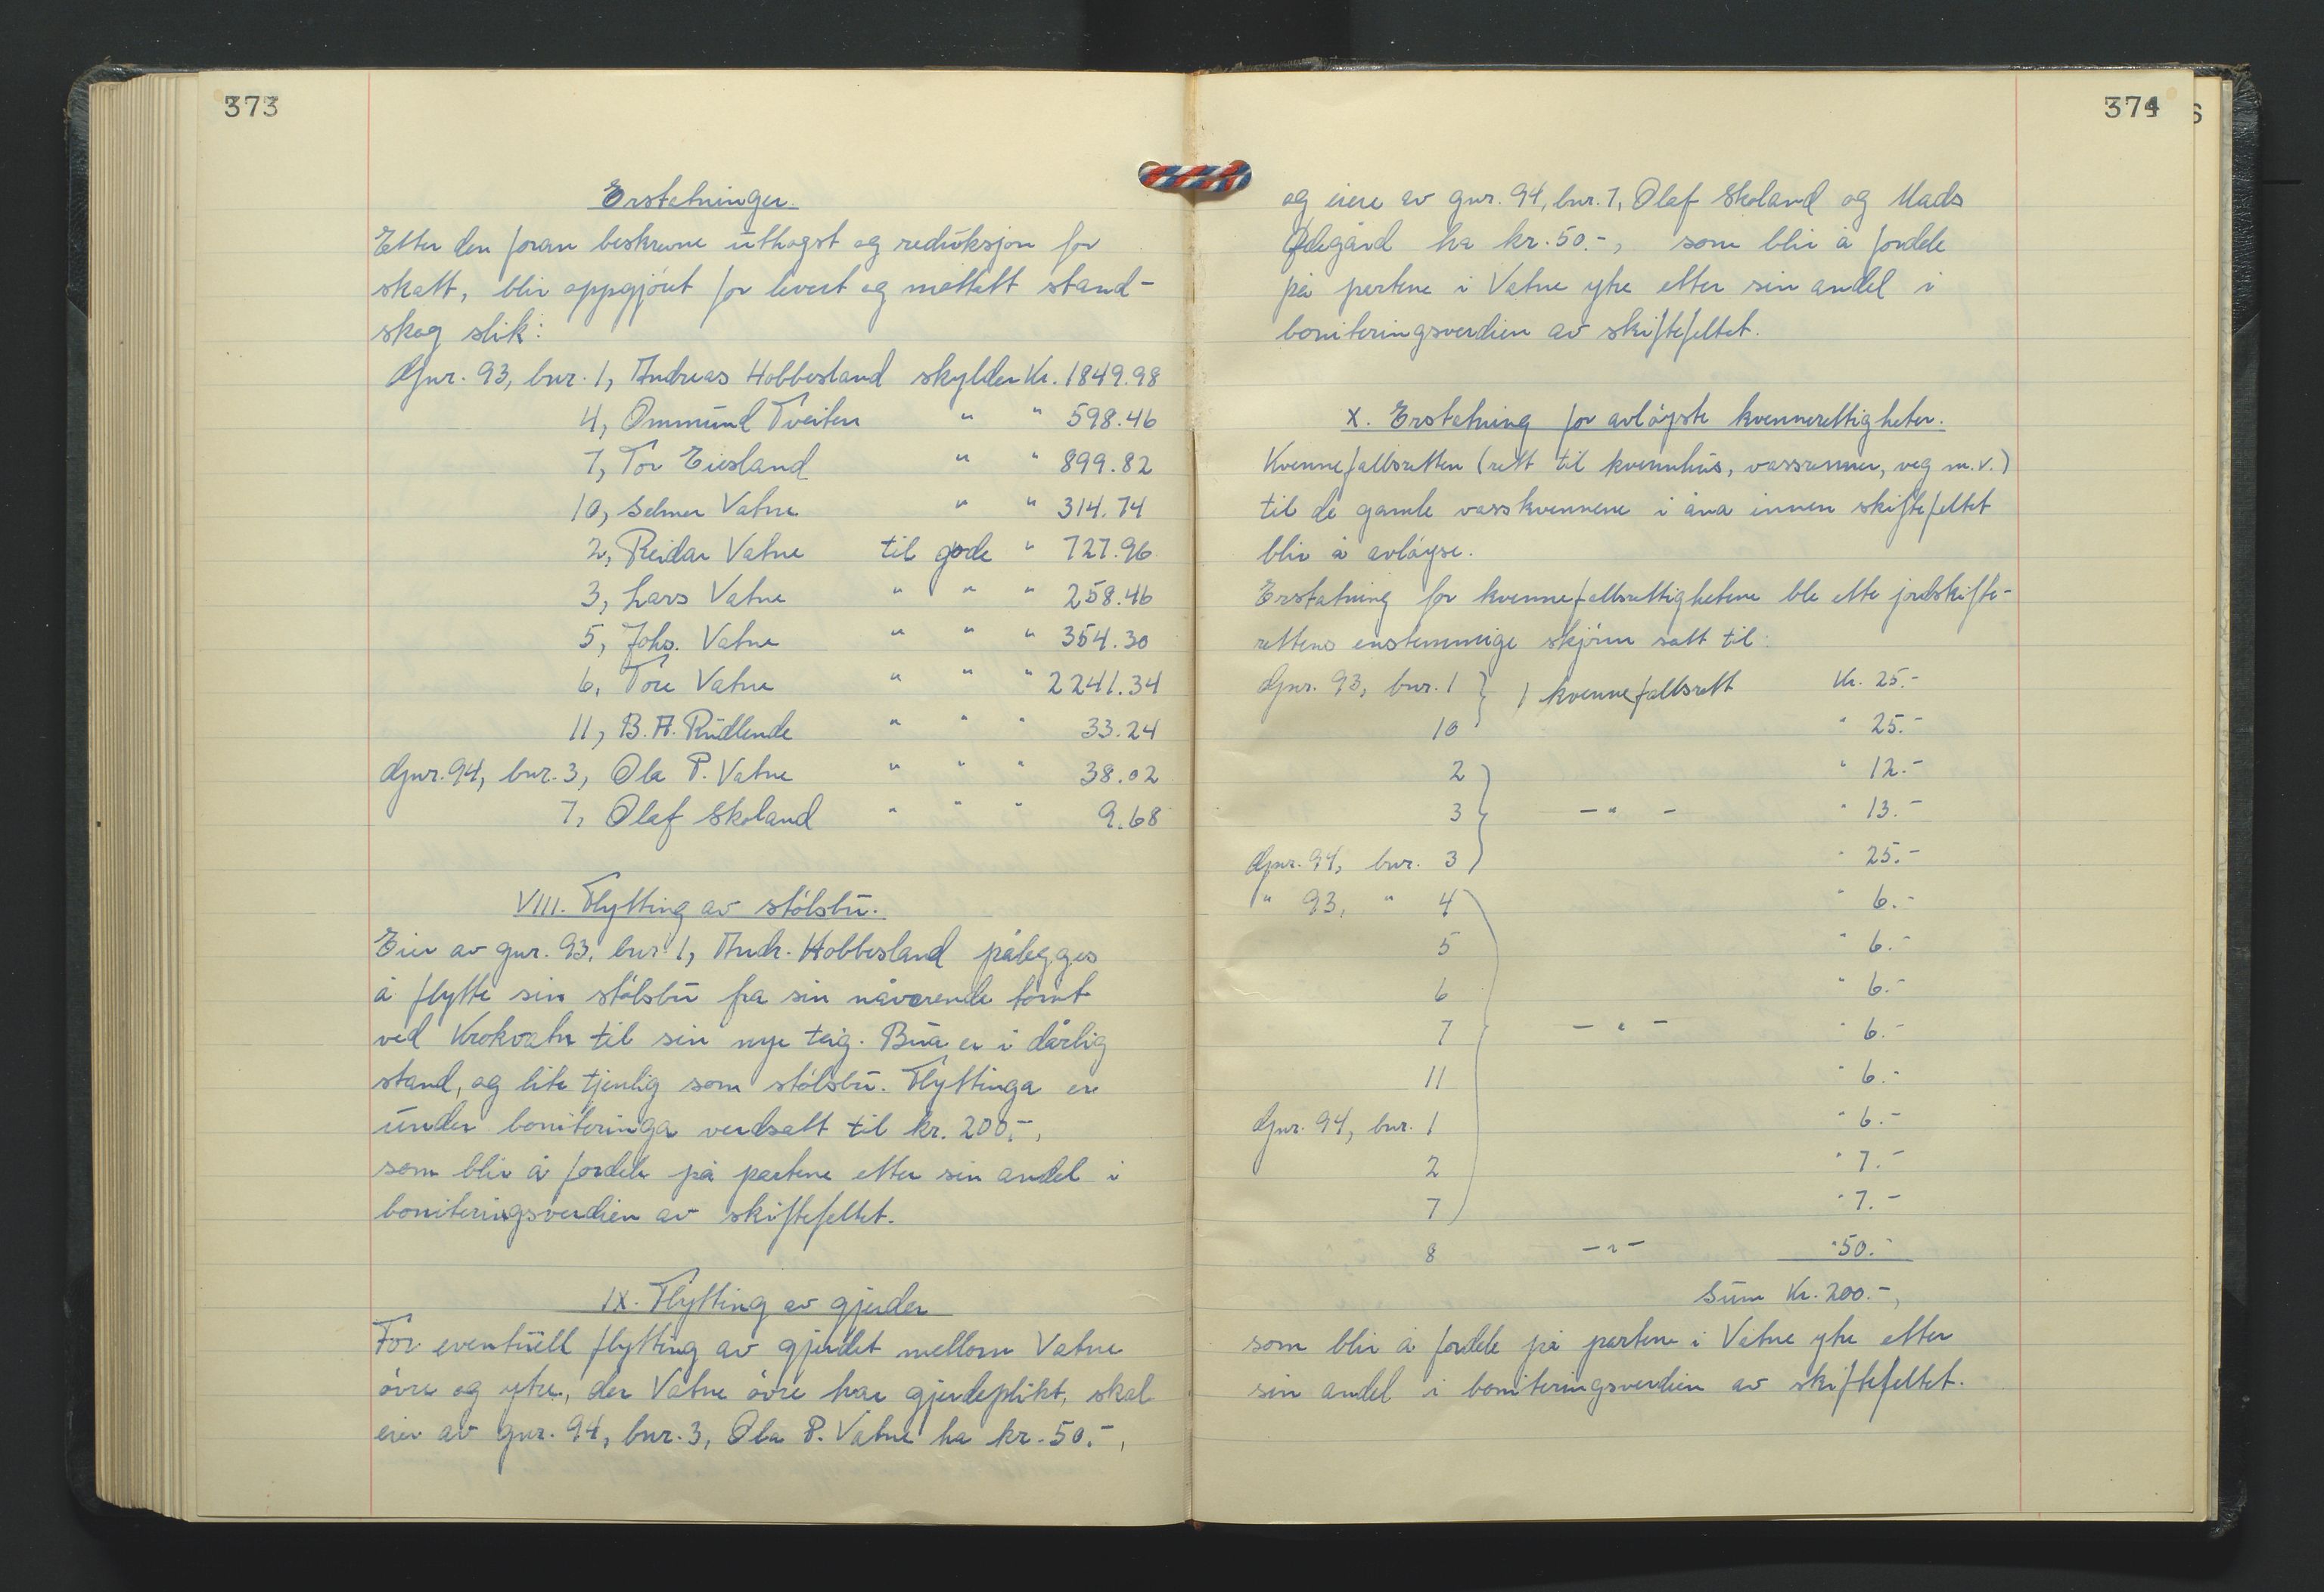 373
Erstatninger.
Etter den foran beskrevne uthogst og reduksjon for
skatt, blir oppgjöret for levert og mottatt stand-
skog slik:
Gnr. 93, bnr. 1, Andreas Hobbesland skylder Kr. 1849.98
4, Ommund Tveiten " " 598.46
7, Tor Eiesland " " 899.82
10, Selmer Vatne " " 314.74
2, Reidar Vatne til gode " 727.96
3, Lars Vatne " " " 258.46
5, Johs. Vatne " " " 354.30
6, Tore Vatne " " " 2241.34
11, B. A. Rudlende " " " 33.24
Gnr. 94, bnr. 3, Ola P. Vatne " " " 38.02
7, Olaf Skoland " " " 9.68
VIII. Flytting av stölsbu.
Eier av gnr. 93, bnr. 1, Andr. Hobbesland pålegges
å flytte sin stölsbu fra sin nåværende tomt
ved Krokvatn til sin nye teig. Bua er i dårlig
stand, og lite tjenlig som stölsbu. Flyttinga er
under boniteringa verdsatt til kr. 200.-,
som blir å fordele på partene etter sin andel i
boniteringsverdien av skiftefeltet.
IX. Flytting av gjerder
For eventuell flytting av gjerdet mellom Vatne
övre og ytre, der Vatne övre har gjerdeplikt, skal
eier av gnr. 94, bnr. 3, Ola P. Vatne ha kr. 50.-,
374
og eiere av gnr. 94, bnr. 7, Olaf Skoland og Mads
Ødegård ha kr. 50.-, som blir å fordele
på partene i Vatne ytre etter sin andel i
boniteringsverdien av skiftefeltet.
X. Erstatning for avlöyste kvernerettigheter.
Kvernefallsretten (rett til kvernhus, vassrenner, veg m.v.)
til de gamle vasskvernene i åna innen skiftefeltet
blir å avlöyse.
Erstatning for kvernefallsrettighetene ble etter jordskifte-
rettens enstemmige skjönn satt til:
Gnr. 93, bnr. 1 } 1 kvernefallsrett Kr. 25.-
10 " 25.-
2 " 12.-
3 - " - " 13.-
Gnr. 94, bnr. 3 " 25.-
" 93, " 4 " 6.-
5 " 6.-
6 " 6.-
7 - " - " 6.-
11 " 6.-
Gnr. 94, bnr. 1 " 6.-
2 " 7.-
7 " 7.-
8 - " - " 50.-
Sum Kr. 200.-,
som blir å fordele på partene i Vatne ytre etter
sin andel i boniteringsverdien av skiftefeltet.